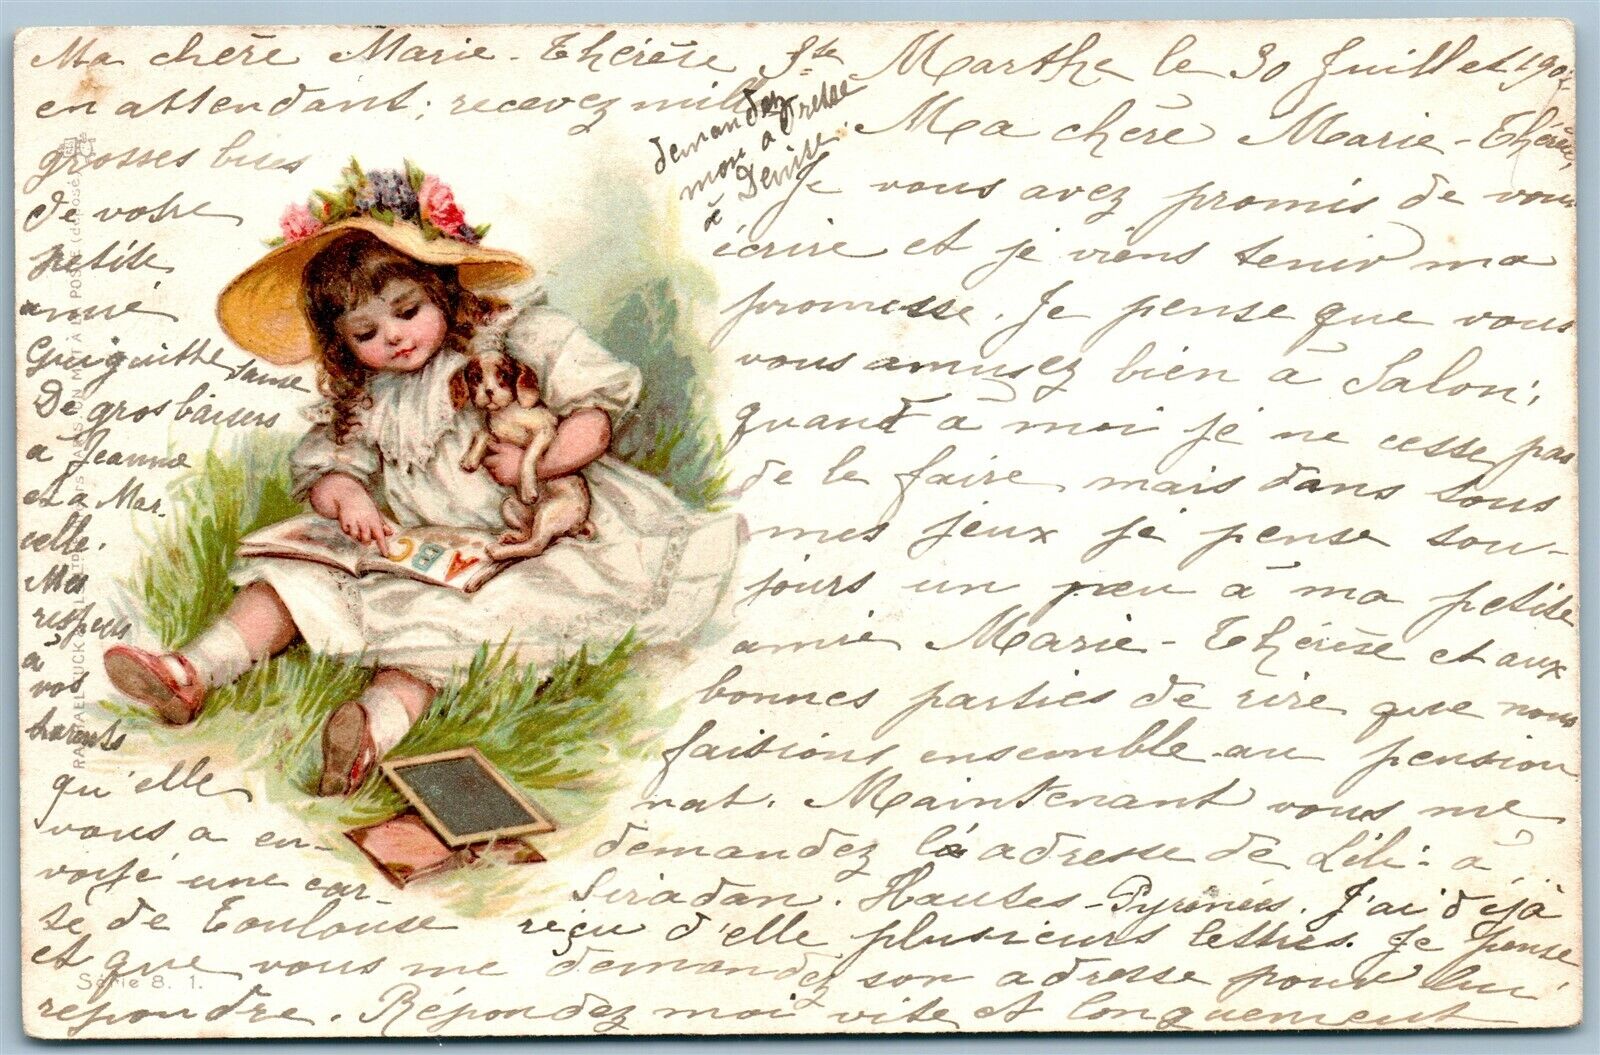 Ste Marthe le 30 Juillet 190
Ma chère Marie-Thérèse,
Je vous avez promis de vous
écrire et je viens tenir ma
promesse. Je pense que vous
vous amusez bien à Salon;
quand à moi je ne cesse pas
de le faire, mais dans tous
mes jeux je pense tou-
jours un peu à ma petite
amie Marie-Thérèse et aux
bonnes parties de rire que nous
faisions ensemble au pension
nat. Maintenant vous me
demandez la adresse de Lili: à
Siradan. Hautes-Pyrénées. J'ai déjà
reçu d'elle plusieurs lettres. Je pense
qu'elle
vous a en-
voyé une car-
te de Toulouse
et que vous me demandez son adresse pour lui
répondre. Répondez moi vite et longuement
Ma chère Marie-Thérèse
en attendant; recevez mille
grosses bises
de votre
petite
amie
De gros baisers
à Jeanne
et à Mar-
celle.
Mes
respects
à
vos
parents
demandez
mon adresse
à Denise.
ABC
RAPHAEL TUCK & FILS LTD PARIS ON MET A LA POSTE (déposé)
Série 8. 1.